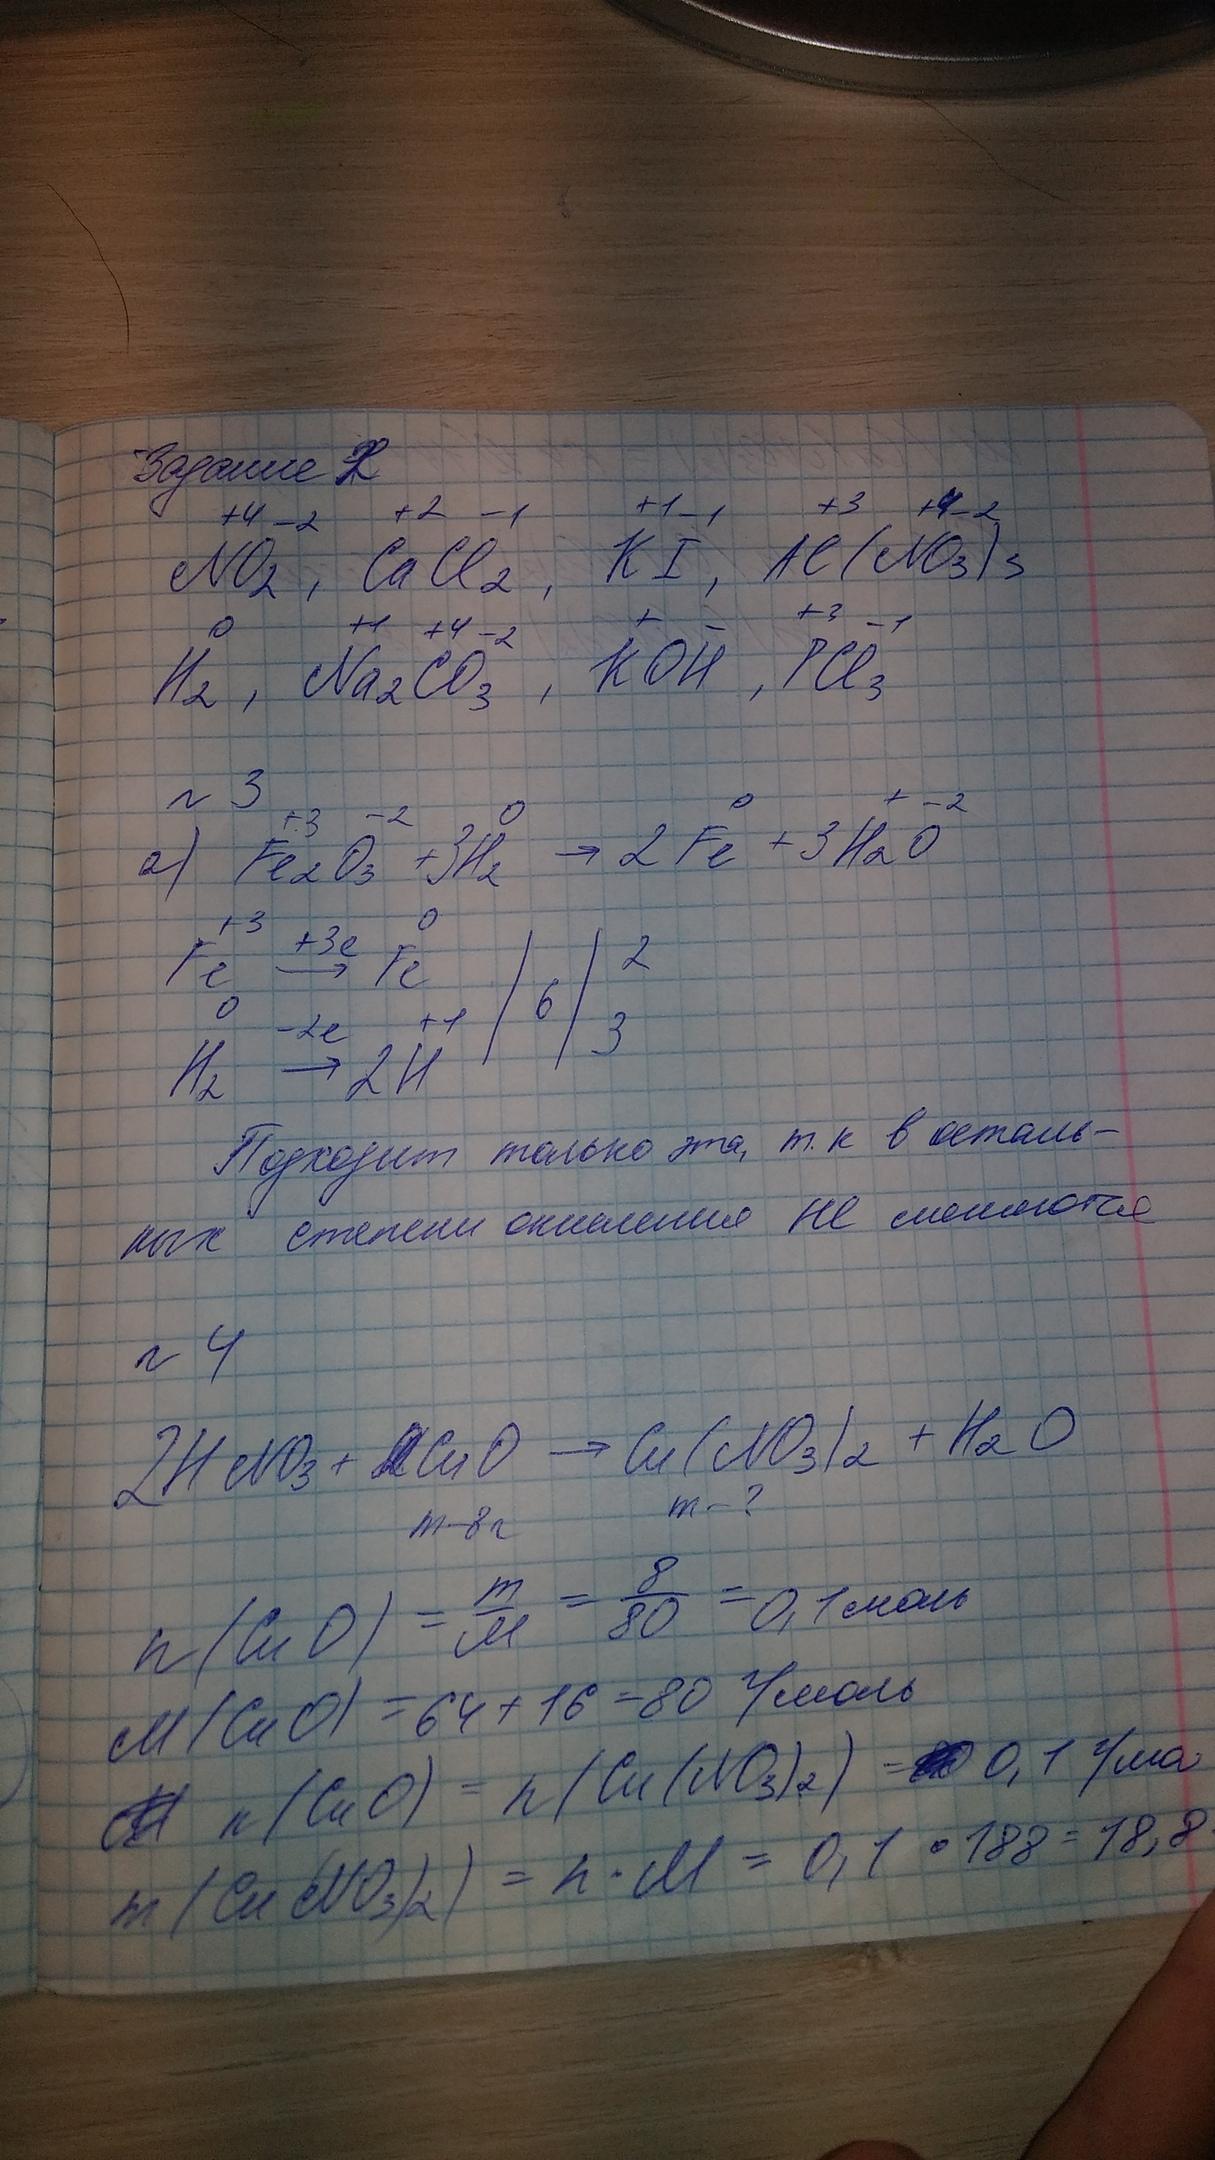 Задание 2
+4 -2 +2 -1 +1 -1 +3 -2
NO2, CaCl2, KI, Al(NO3)3
0 +1 +4 -2 + - +3 -1
H2, Na2CO3, KOH, PCl3
№ 3
+3 -2 0 0 + -2
а) Fe2O3 + 3H2 → 2Fe + 3H2O
+3 +3e 0
Fe → Fe | 6 | 2
0 -2e +1
H2 → 2H 3
Подходит только эта, т.к в осталь-
ных степени окисления не меняются
№ 4
2HNO3 + CuO → Cu(NO3)2 + H2O
m-8г m-?
n(CuO) = m/M = 8/80 = 0,1 моль
M(CuO) = 64 + 16 = 80 г/моль
n(CuO) = n(Cu(NO3)2) = 0,1 г/мо
m(Cu(NO3)2) = n · M = 0,1 · 188 = 18,8